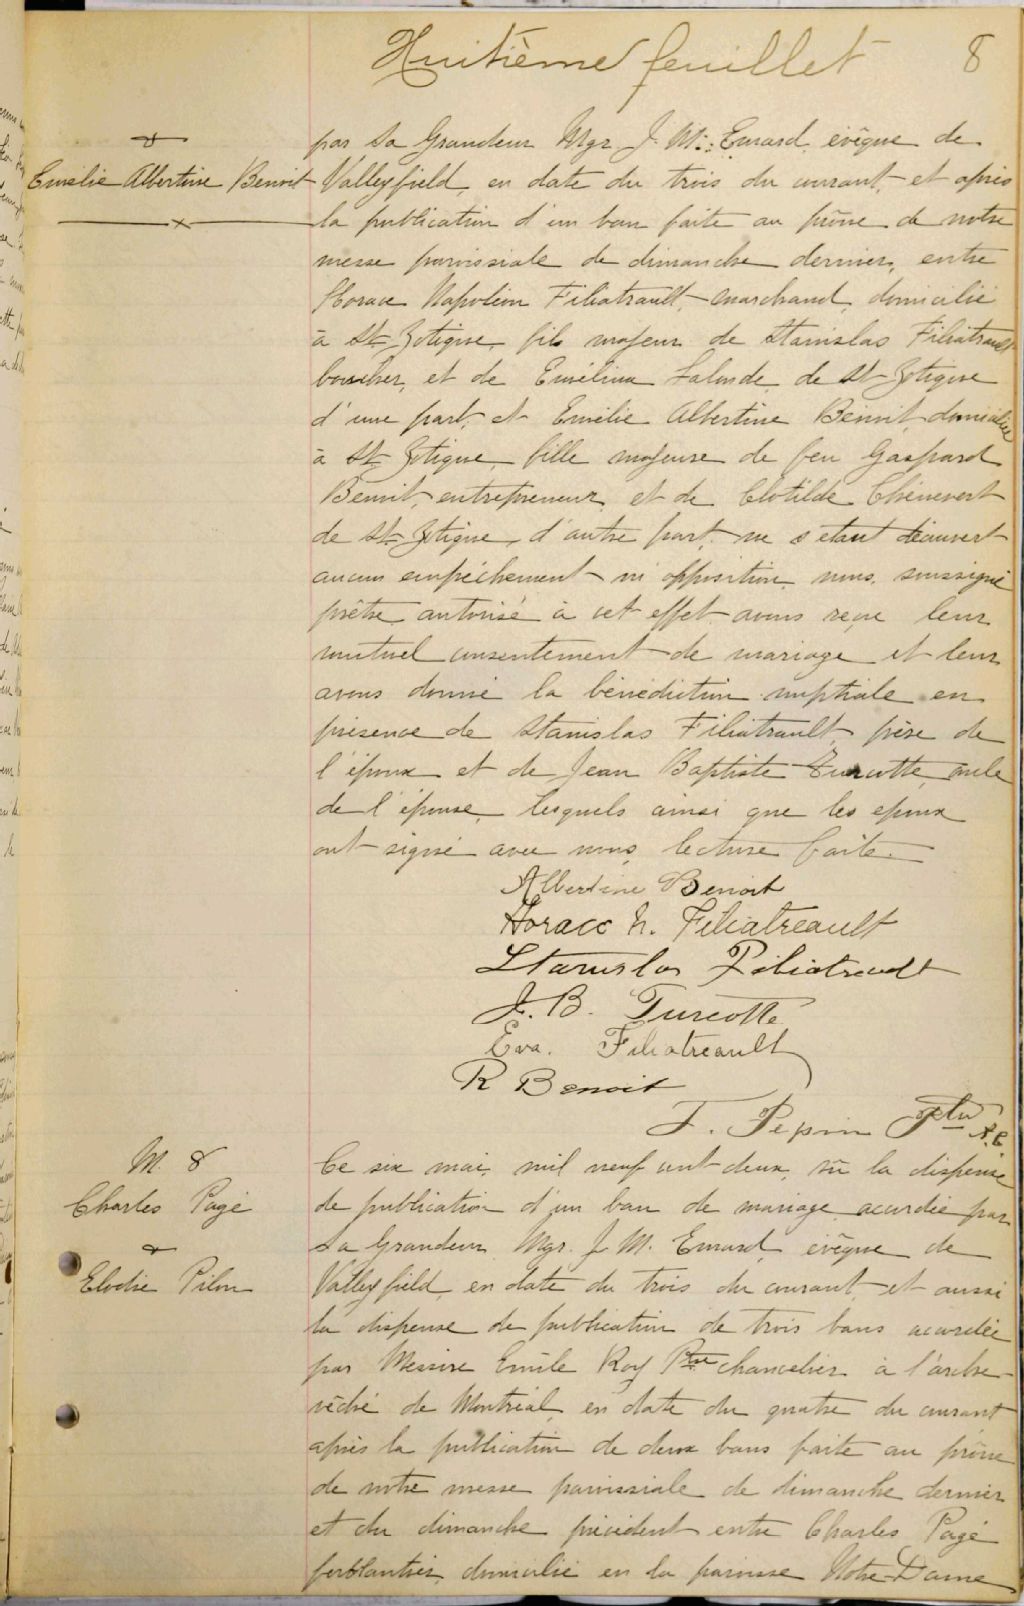 Huitième feuillet 8
&
Emélie Albertine Benoit
par Sa Grandeur Mgr J. M. Emard, évêque de
Valleyfield, en date du trois du courant, et après
la publication d'un ban faite au prône de notre
messe paroissiale de dimanche dernier, entre
Horace Napoléon Filiatrault, marchand, domicilié
à St-Zotique, fils majeur de Stanislas Filiatrault
boucher, et de Emélina Lalonde, de St-Zotique
d'une part, et Emélie Albertine Benoit, domiciliée
à St-Zotique, fille majeure de feu Gaspard
Benoit, entrepreneur, et de Clotilde Chénevert
de St-Zotique, d'autre part, ne s'étant découvert
aucun empêchement ni opposition, nous, soussigné
prêtre autorisé à cet effet avons reçu leur
mutuel consentement de mariage et leur
avons donné la bénédiction nuptiale en
présence de Stanislas Filiatrault, père de
l'époux et de Jean Baptiste Turcotte, oncle
de l'épouse, lesquels ainsi que les époux
ont signé avec nous, lecture faite.
Albertine Benoit
Horace N. Filiatreault
Stanislas Filiatreault
J. B. Turcotte
Eva. Filiatreault
R Benoit
F. Pepin Ptre
M. 8
Charles Pagé
&
Elodie Pilon
Ce six mai, mil neuf cent deux, vu la dispense
de publication d'un ban de mariage accordée par
Sa Grandeur Mgr. J. M. Emard, évêque de
Valleyfield, en date du trois du courant, et aussi
la dispense de publication de trois bans accordée
par Messire Emile Roy Ptre chancelier à l'arche-
vêché de Montréal, en date du quatre du courant
après la publication de deux bans faite au prône
de notre messe paroissiale de dimanche dernier
et du dimanche précédent entre Charles Pagé
ferblantier, domicilié en la paroisse Notre-Dame